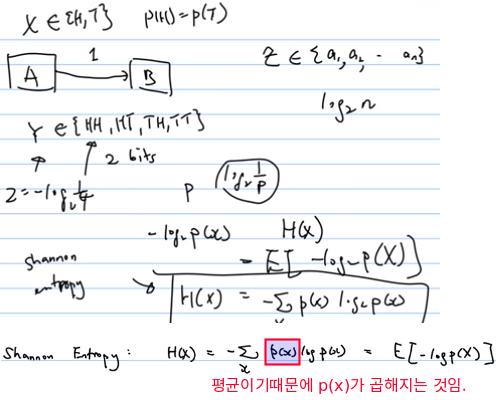 X ∈ {H,T} p(H) = p(T)
A 1 B
Z ∈ {a₁, a₂, - aₙ}
log₂ n
Y ∈ {HH, HT, TH, TT}
2 bits
2 = -log₂ 1/4
p log₂ 1/p
-log₂ p(x) H(X)
= E[ -log₂ p(X) ]
Shannon
entropy
H(X) = -∑ₓ p(x) log₂ p(x)
Shannon Entropy : H(X) = -∑ₓ p(x) log p(x) = E[-log p(X)]
평균이기때문에 p(x)가 곱해지는 것임.